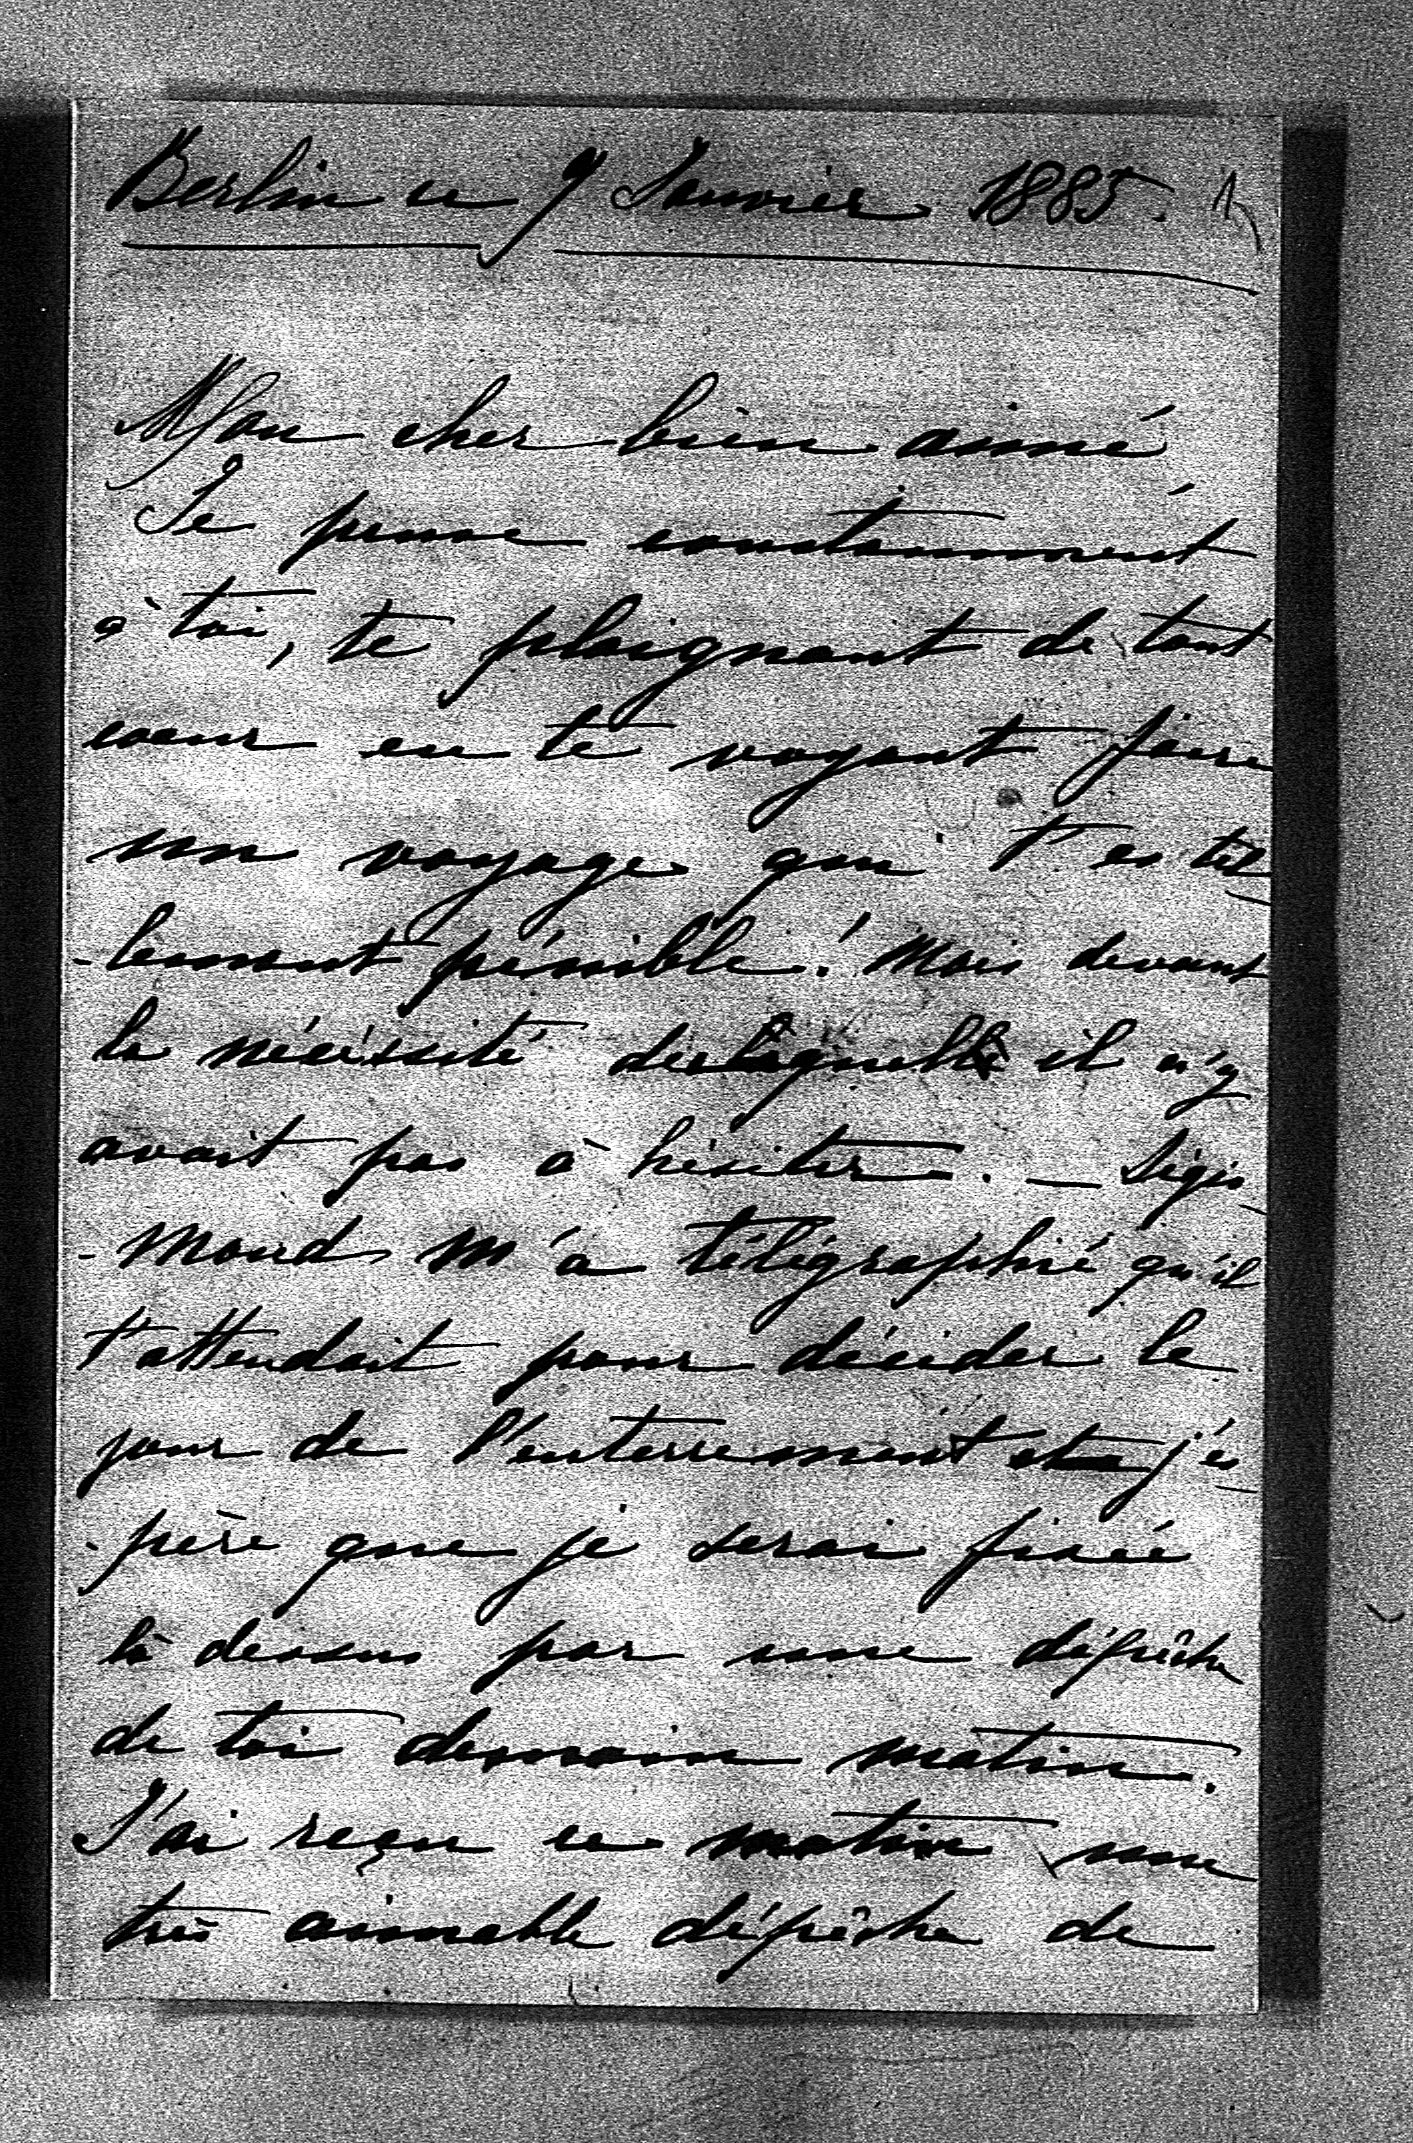 Berlin ce 9 Janvier 1885. 1)
Mon cher bien aimé
Je pense constamment
à toi, te plaignant de tout
coeur en te voyant faire
un voyage qui t'es tel
-lement pénible! Mais devant
la nécéssité de laquelle il n'y
avait pas à hésiter. — Sigis
-mond m'a télégraphié qu'il
t'attendait pour décider le
jour de l'enterrement et j'es
-père que je serai fixée
là dessus par une dépêche
de toi demain matin.
J'ai reçu ce matin une
très aimable dépêche de